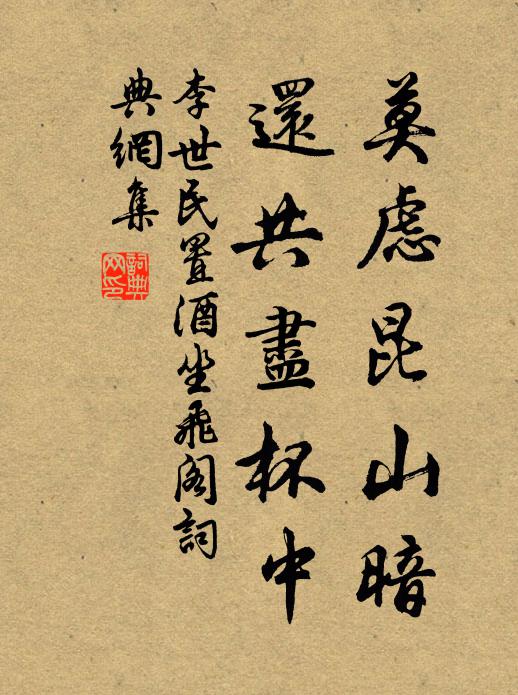 莫慮昆山暗
還共盡杯中
李世民置酒坐飛阁詞
典網集
詞典網印